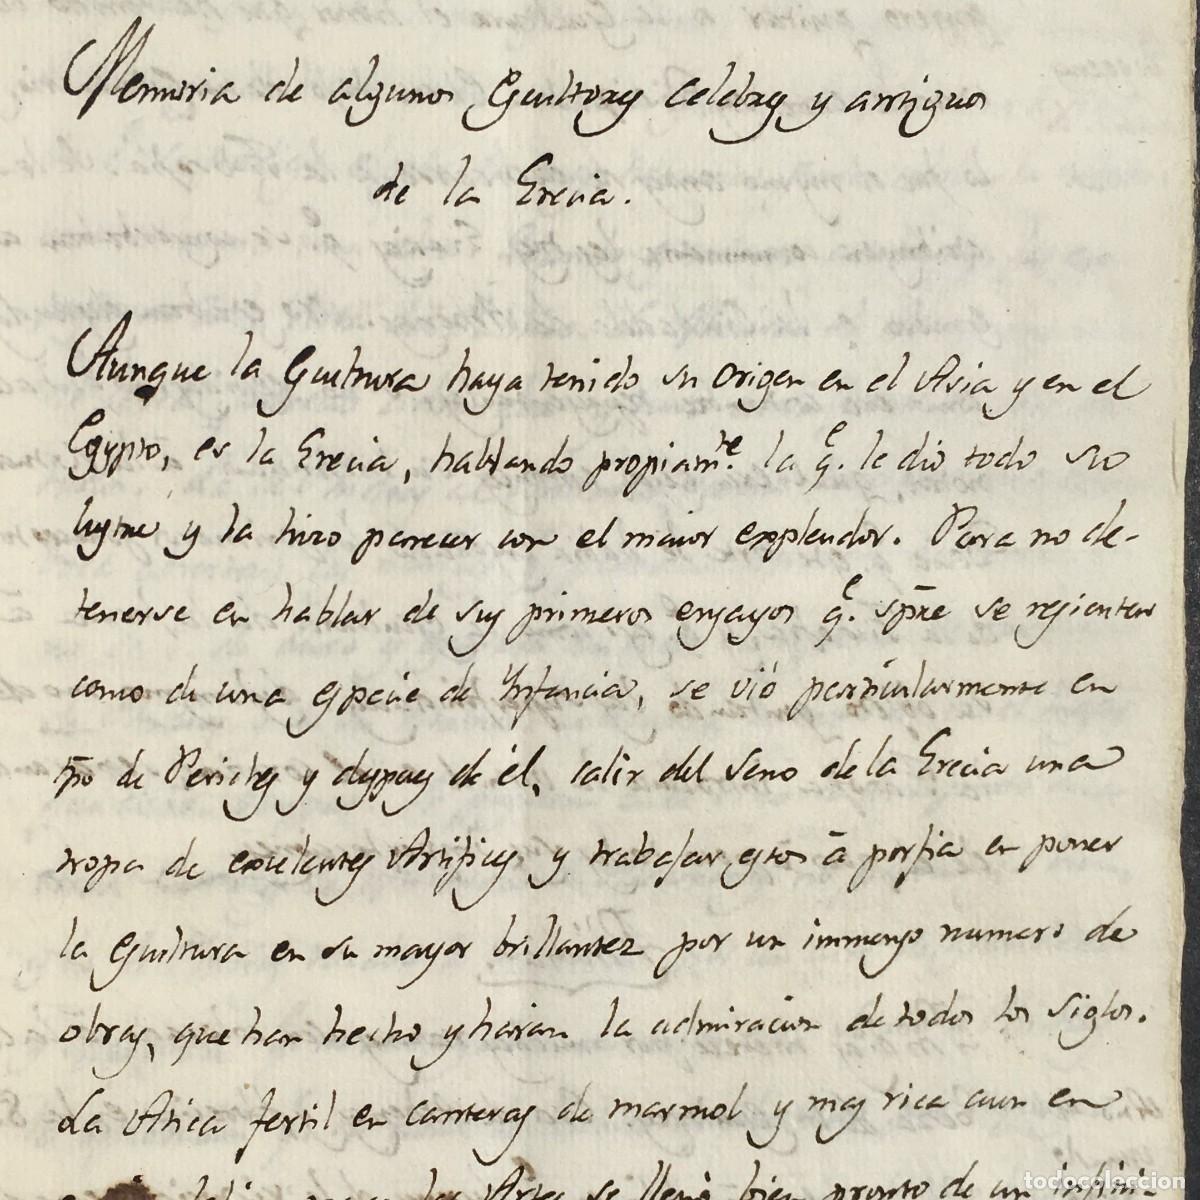 Memoria de algunos Escultores Celebres y antiguos
de la Grecia.
Aunque la Escultura haya tenido su origen en el Asia y en el
Egypto, es la Grecia, hablando propiamte. la qe. le dio todo su
lustre y la hizo parecer con el maior explendor. Para no de-
tenerse en hablar de sus primeros ensayos qe. spre se resienten
como de una especie de Ynfancia, se vió particularmente en
tpo de Pericles y despues de él, salir del seno de la Grecia una
tropa de excelentes Artifices y trabajar estos á porfia en poner
la Escultura en su mayor brillantez por un immenso numero de
obras, que han hecho y haran la admiracion de todos los Siglos.
La Atica fertil en canteras de marmol y mas rica aun en
las Artes se llenó bien pronto de un
todocoleccion